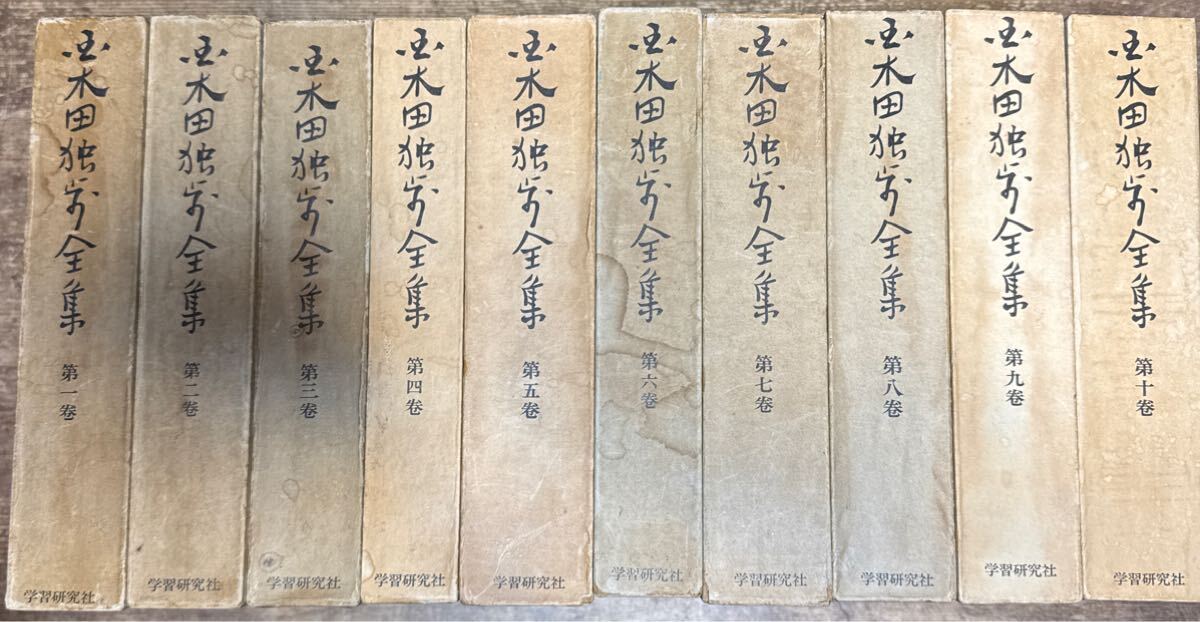 国木田独歩全集
第一卷
学習研究社
国木田独歩全集
第二卷
学習研究社
国木田独歩全集
第三卷
学習研究社
国木田独歩全集
第四卷
学習研究社
国木田独歩全集
第五卷
学習研究社
国木田独歩全集
第六卷
学習研究社
国木田独歩全集
第七卷
学習研究社
国木田独歩全集
第八卷
学習研究社
国木田独歩全集
第九卷
学習研究社
国木田独歩全集
第十卷
学習研究社